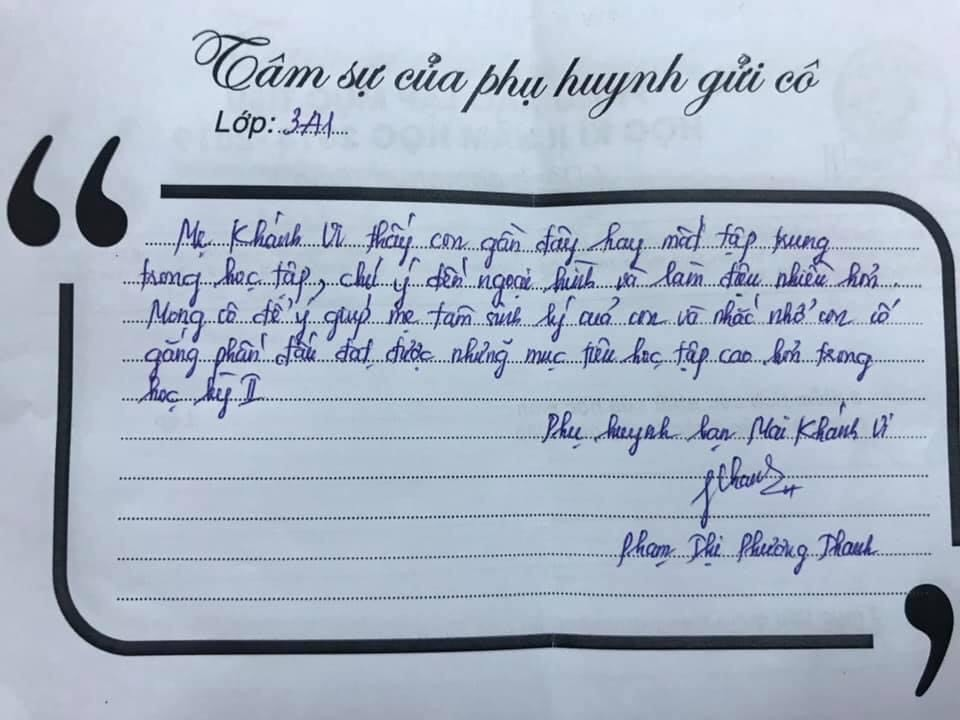 Tâm sự của phụ huynh gửi cô
Lớp: 3A1
Mẹ Khánh Vi thấy con gần đây hay mất tập trung
trong học tập, chú ý đến ngoại hình và làm điệu nhiều hơn.
Mong cô để ý giúp mẹ tâm sinh lý của con và nhắc nhở con cố
gắng phấn đấu đạt được những mục tiêu học tập cao hơn trong
học kỳ II
Phụ huynh bạn Mai Khánh Vi
Phạm Thị Phương Thanh